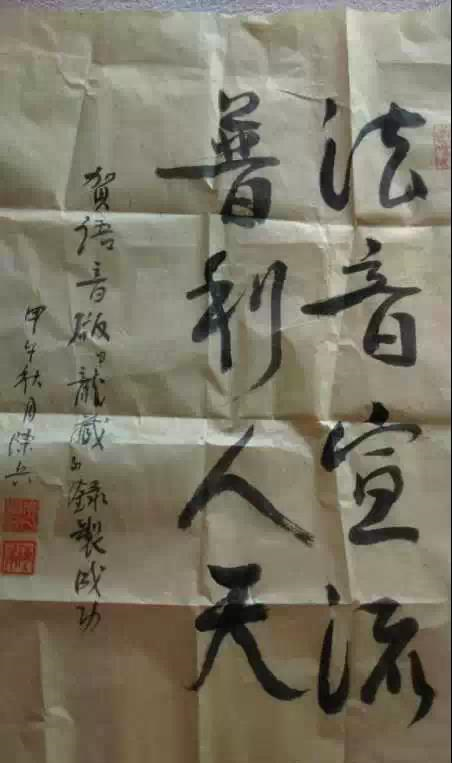 法音宣流
普利人天
贺语音版《龍藏》録製成功
甲午秋月陳兵